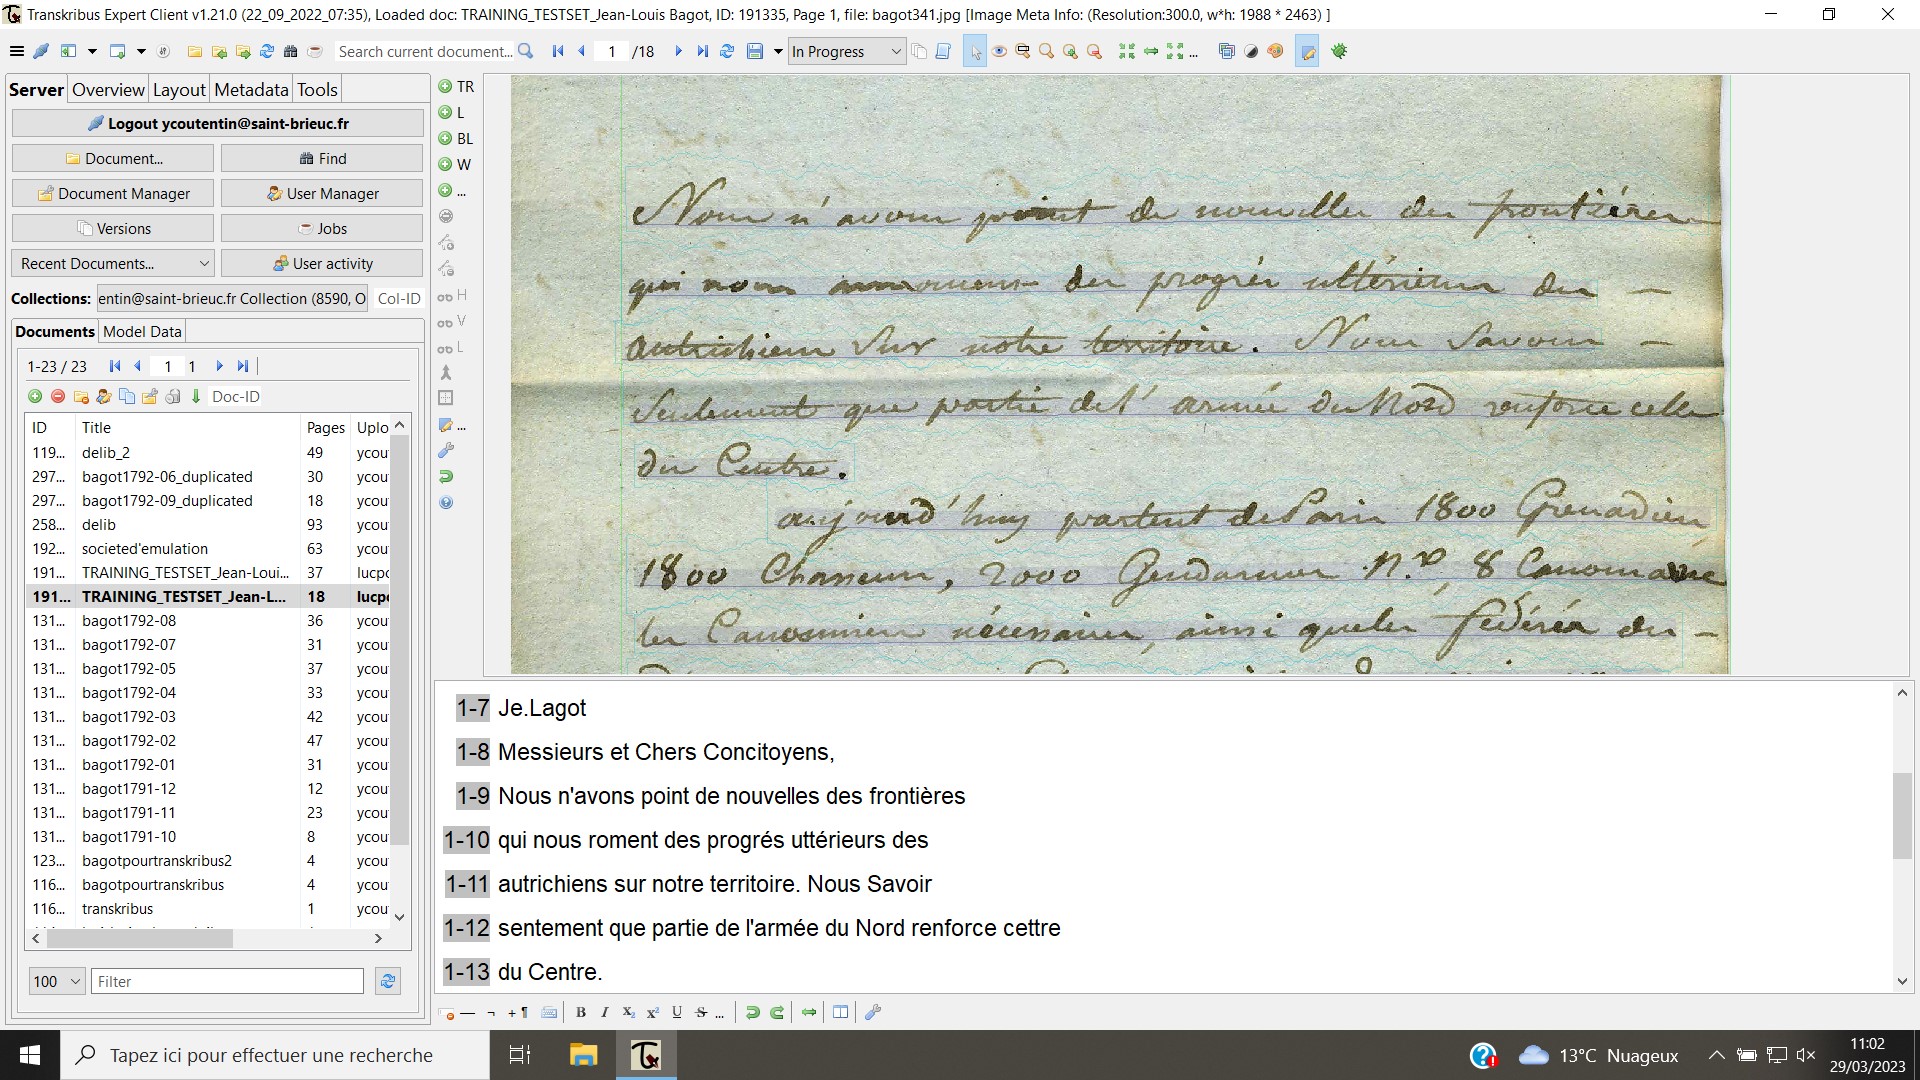 Transkribus Expert Client v1.21.0 (22_09_2022_07:35), Loaded doc: TRAINING_TESTSET_Jean-Louis Bagot, ID: 191335, Page 1, file: bagot341.jpg [Image Meta Info: (Resolution:300.0, w*h: 1988 * 2463) ]
Search current document... 1 /18 In Progress ...
Server Overview Layout Metadata Tools
Logout ycoutentin@saint-brieuc.fr
Document... Find
Document Manager User Manager
Versions Jobs
Recent Documents... User activity
Collections: entin@saint-brieuc.fr Collection (8590, O Col-ID
Documents Model Data
1-23 / 23 1 1
Doc-ID
ID Title Pages Uplo
119... delib_2 49 ycou
297... bagot1792-06_duplicated 30 ycou
297... bagot1792-09_duplicated 18 ycou
258... delib 93 ycou
192... societed'emulation 63 ycou
191... TRAINING_TESTSET_Jean-Loui... 37 lucpo
191... TRAINING_TESTSET_Jean-L... 18 lucpo
131... bagot1792-08 36 ycou
131... bagot1792-07 31 ycou
131... bagot1792-05 37 ycou
131... bagot1792-04 33 ycou
131... bagot1792-03 42 ycou
131... bagot1792-02 47 ycou
131... bagot1792-01 31 ycou
131... bagot1791-12 12 ycou
131... bagot1791-11 23 ycou
131... bagot1791-10 8 ycou
123... bagotpourtranskribus2 4 ycou
116... bagotpourtranskribus 4 ycou
116... transkribus 1 ycou
100 Filter
TR
L
BL
W
...
H
V
L
...
Nous n'avons point de nouvelles des frontières
qui nous annoncent des progrés ultérieurs des —
autrichiens sur notre territoire. Nous Savons —
Seulement que partie de l'armée du Nord renforce celle
du Centre.
aujourd'huy partent de Paris 1800 Grenadiers
1800 Chasseurs, 2000 Gendarmes N.x 8 Canons avec
les Canonniers nécessaires, ainsi que les fédérés des —
1-7 Je.Lagot
1-8 Messieurs et Chers Concitoyens,
1-9 Nous n'avons point de nouvelles des frontières
1-10 qui nous roment des progrés uttérieurs des
1-11 autrichiens sur notre territoire. Nous Savoir
1-12 sentement que partie de l'armée du Nord renforce cettre
1-13 du Centre.
B I X₂ x² U S ...
Tapez ici pour effectuer une recherche
13°C Nuageux
11:02
29/03/2023